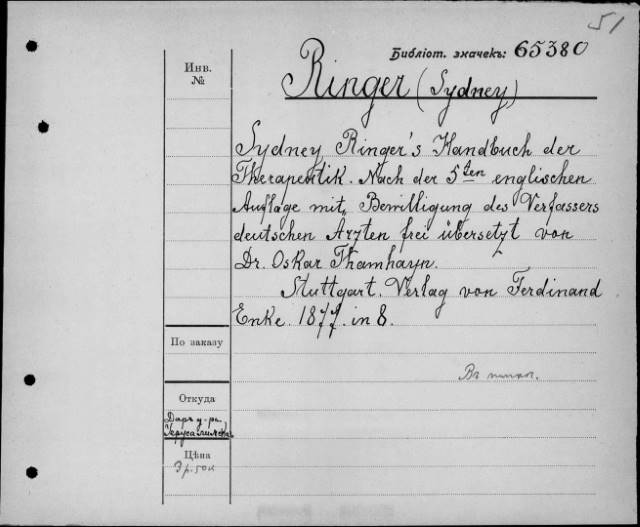 51
Библіот. значекъ: 65380
Инв.
№
Ringer (Sydney)
Sydney Ringer's Handbuch der
Therapeutik. Nach der 5ten englischen
Auflage mit Bewilligung des Verfassers
deutschen Ärzten frei übersetzt von
Dr. Oskar Thamhayn.
Stuttgart. Verlag von Ferdinand
Enke. 1877. in 8.
По заказу
Откуда
Даръ
Цѣна
3 р. 50 к